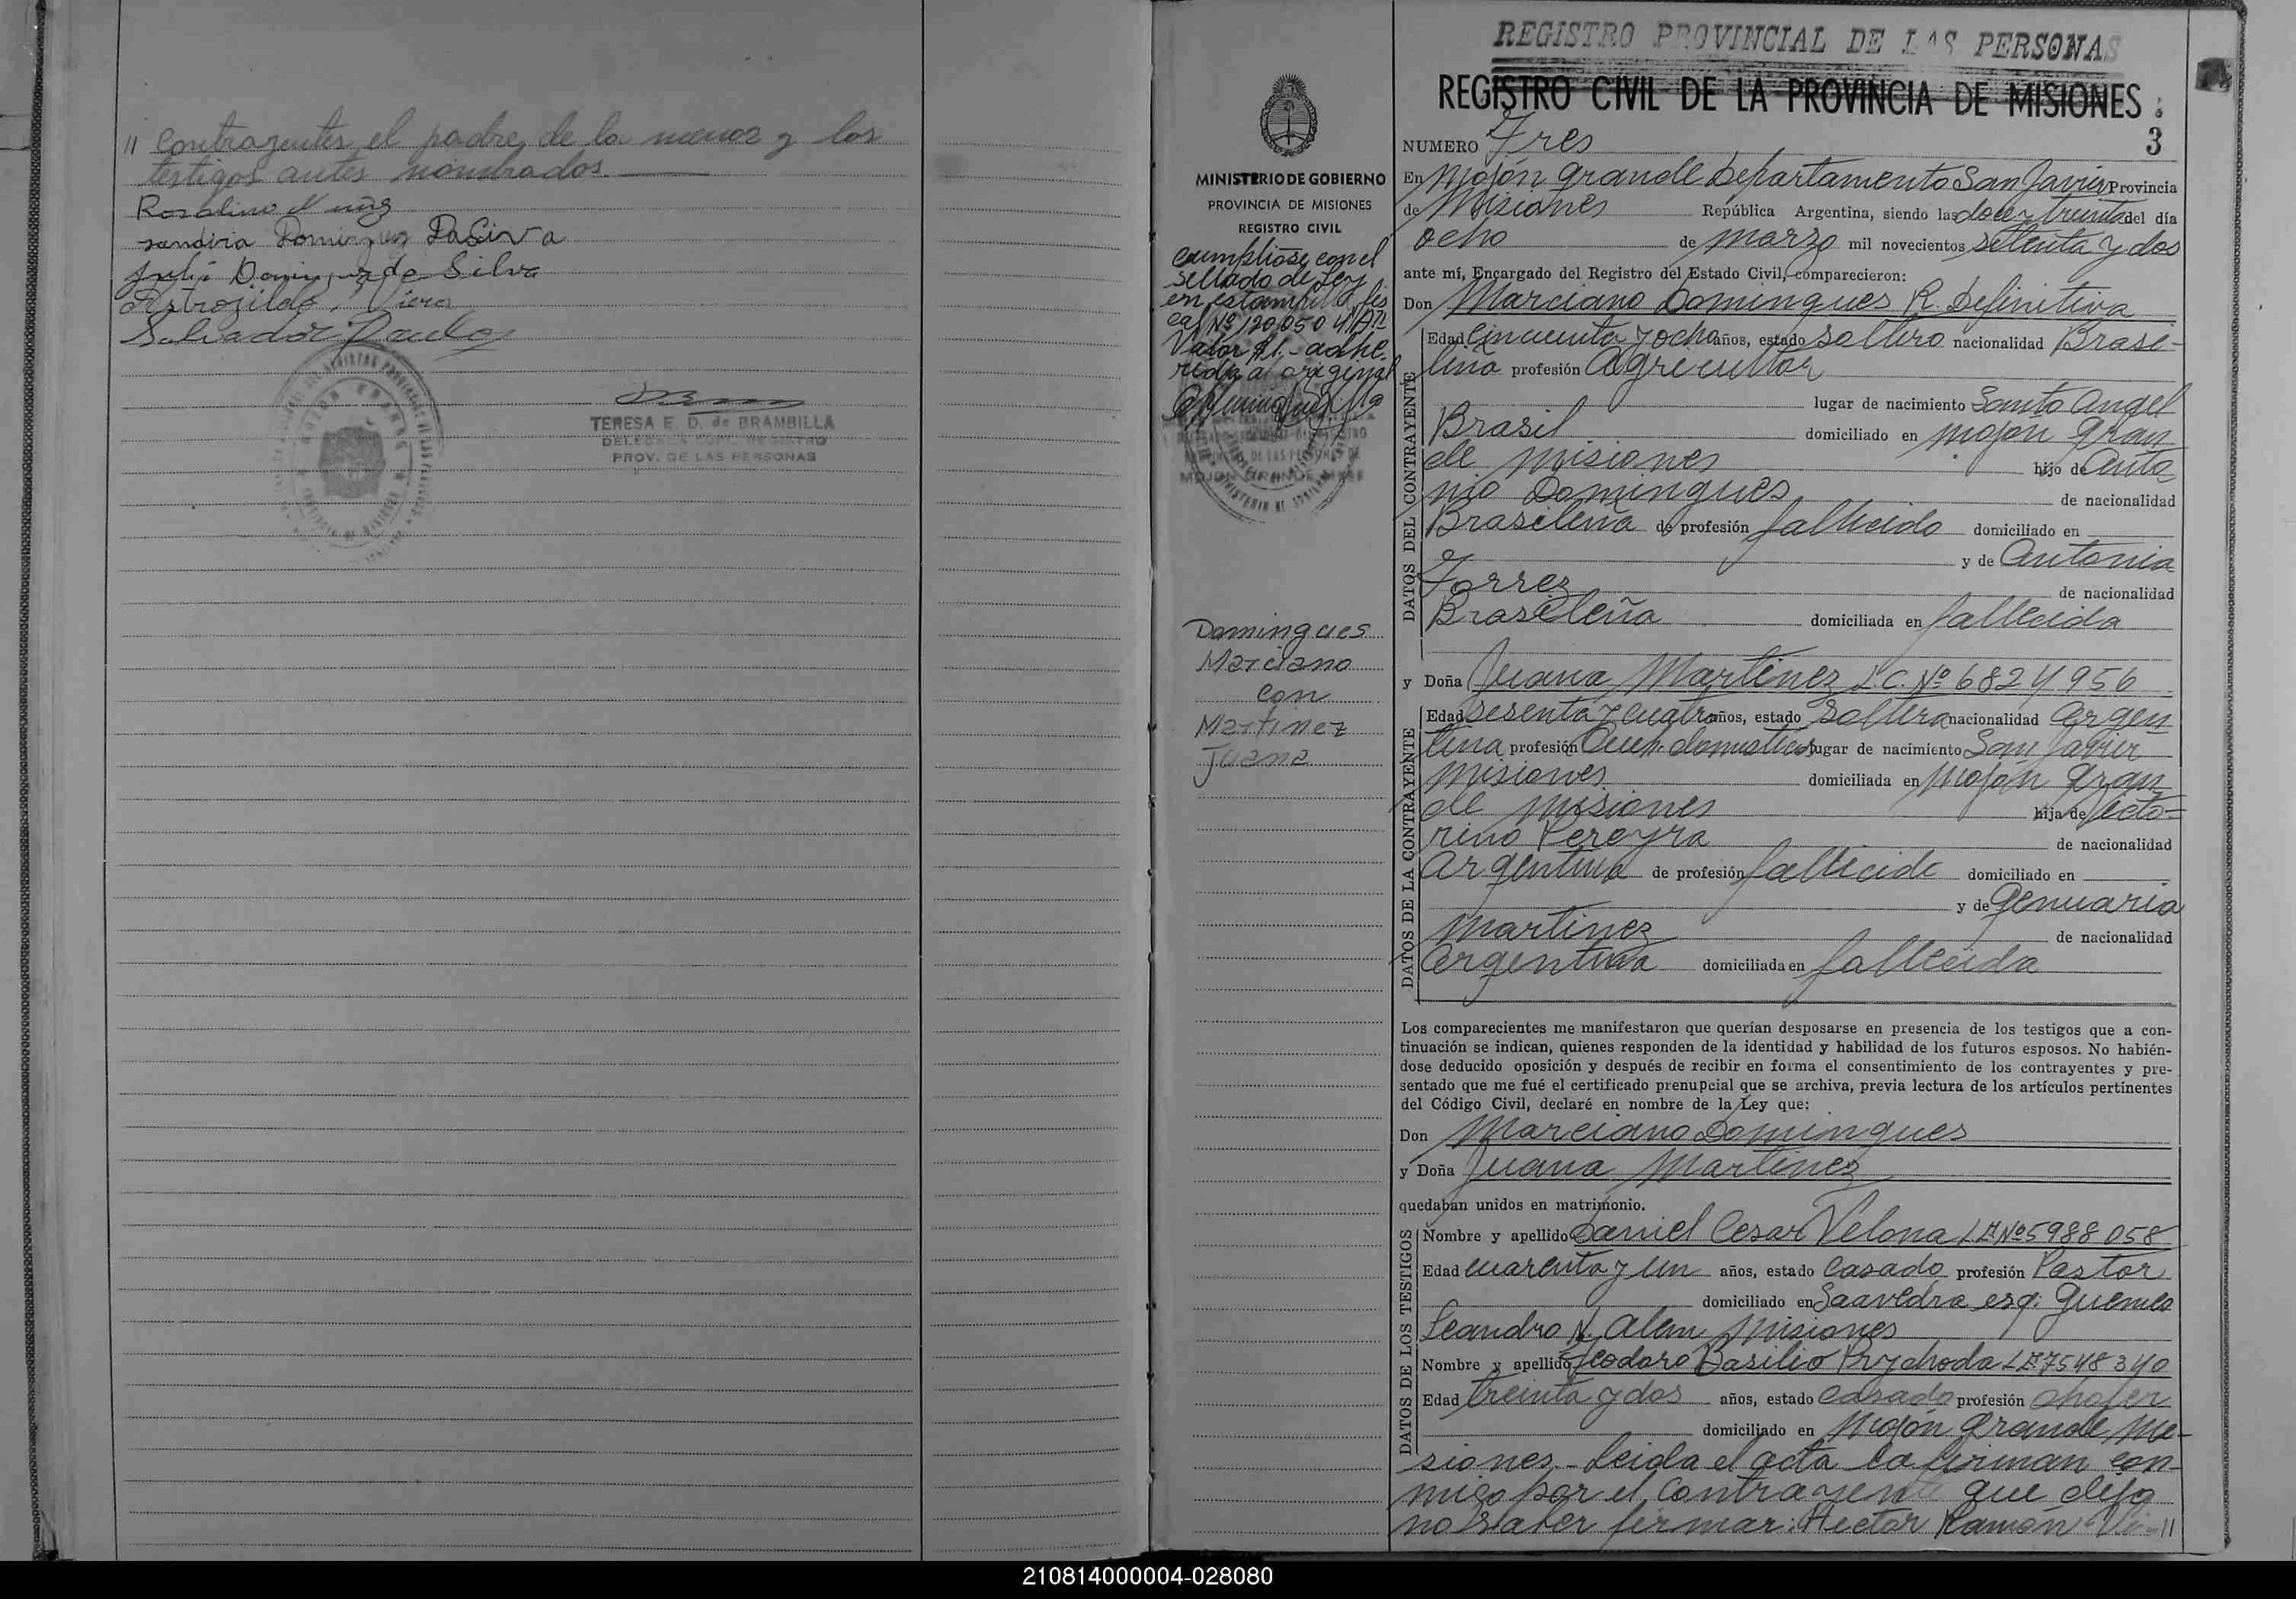 // Contrayentes el padre de la menor y los
testigos antes nombrados.
Rosalino Nuñez
sandira Dominguez DaSiva
Julia Dominguez da Silva
Astrogildo Viera
Salvador
TERESA E. D. de BRAMBILLA
PROV. DE LAS PERSONAS
REGISTRO PROVINCIAL DE LAS PERSONAS
REGISTRO CIVIL DE LA PROVINCIA DE MISIONES
3
MINISTERIO DE GOBIERNO
PROVINCIA DE MISIONES
REGISTRO CIVIL
Cumplióse con el
Sellado de Ley
en estampilla fis
cal Nº 120.050
Valor $1.- adhe.
rida al original
Domingues
Marciano
con
Martinez
Juana
NUMERO Tres
En Mojón Grande Departamento San Javier Provincia
de Misiones República Argentina, siendo las doce y treinta del día
ocho de marzo mil novecientos setenta y dos
ante mí, Encargado del Registro del Estado Civil, comparecieron:
Don Marciano Domingues R. Definitiva
DATOS DEL CONTRAYENTE
Edad Cincuenta y ocho años, estado soltero nacionalidad Brasi-
leña profesión Agricultor
lugar de nacimiento Santo Angel
Brasil domiciliado en Mojón Gran
de Misiones hijo de Anto-
nio Domingues de nacionalidad
Brasileña de profesión fallecido domiciliado en
y de Antonia
Torrez de nacionalidad
Brasileña domiciliada en fallecida
y Doña Juana Martinez L.C. Nº 6824956
DATOS DE LA CONTRAYENTE
Edad Sesenta y cuatro años, estado Soltera nacionalidad Argen
tina profesión Queh. domesticos lugar de nacimiento San Javier
Misiones domiciliada en Mojón Gran
de Misiones hija de Vecto=
rino Pereyra de nacionalidad
Argentina de profesión fallecido domiciliado en
y de Genuaria
Martinez de nacionalidad
Argentina domiciliada en fallecida
Los comparecientes me manifestaron que querían desposarse en presencia de los testigos que a con-
tinuación se indican, quienes responden de la identidad y habilidad de los futuros esposos. No habién-
dose deducido oposición y después de recibir en forma el consentimiento de los contrayentes y pre-
sentado que me fué el certificado prenupcial que se archiva, previa lectura de los artículos pertinentes
del Código Civil, declaré en nombre de la Ley que:
Don Marciano Domingues
y Doña Juana Martinez
quedaban unidos en matrimonio.
DATOS DE LOS TESTIGOS
Nombre y apellido Daniel Cesar Velona L.E Nº 5988058
Edad cuarenta y un años, estado casado profesión Pastor
domiciliado en Saavedra esq: Guemes
Leandro N. Alem Misiones
Nombre y apellido Teodoro Basilio Prychoda L.E. 7548340
Edad treinta y dos años, estado casado profesión chofer
domiciliado en Mojón Grande, Mi-
siones.- Leida el acta la firman con-
migo por el Contrayente que dijo
no saber firmar: Hector Ramón //
210814000004-028080